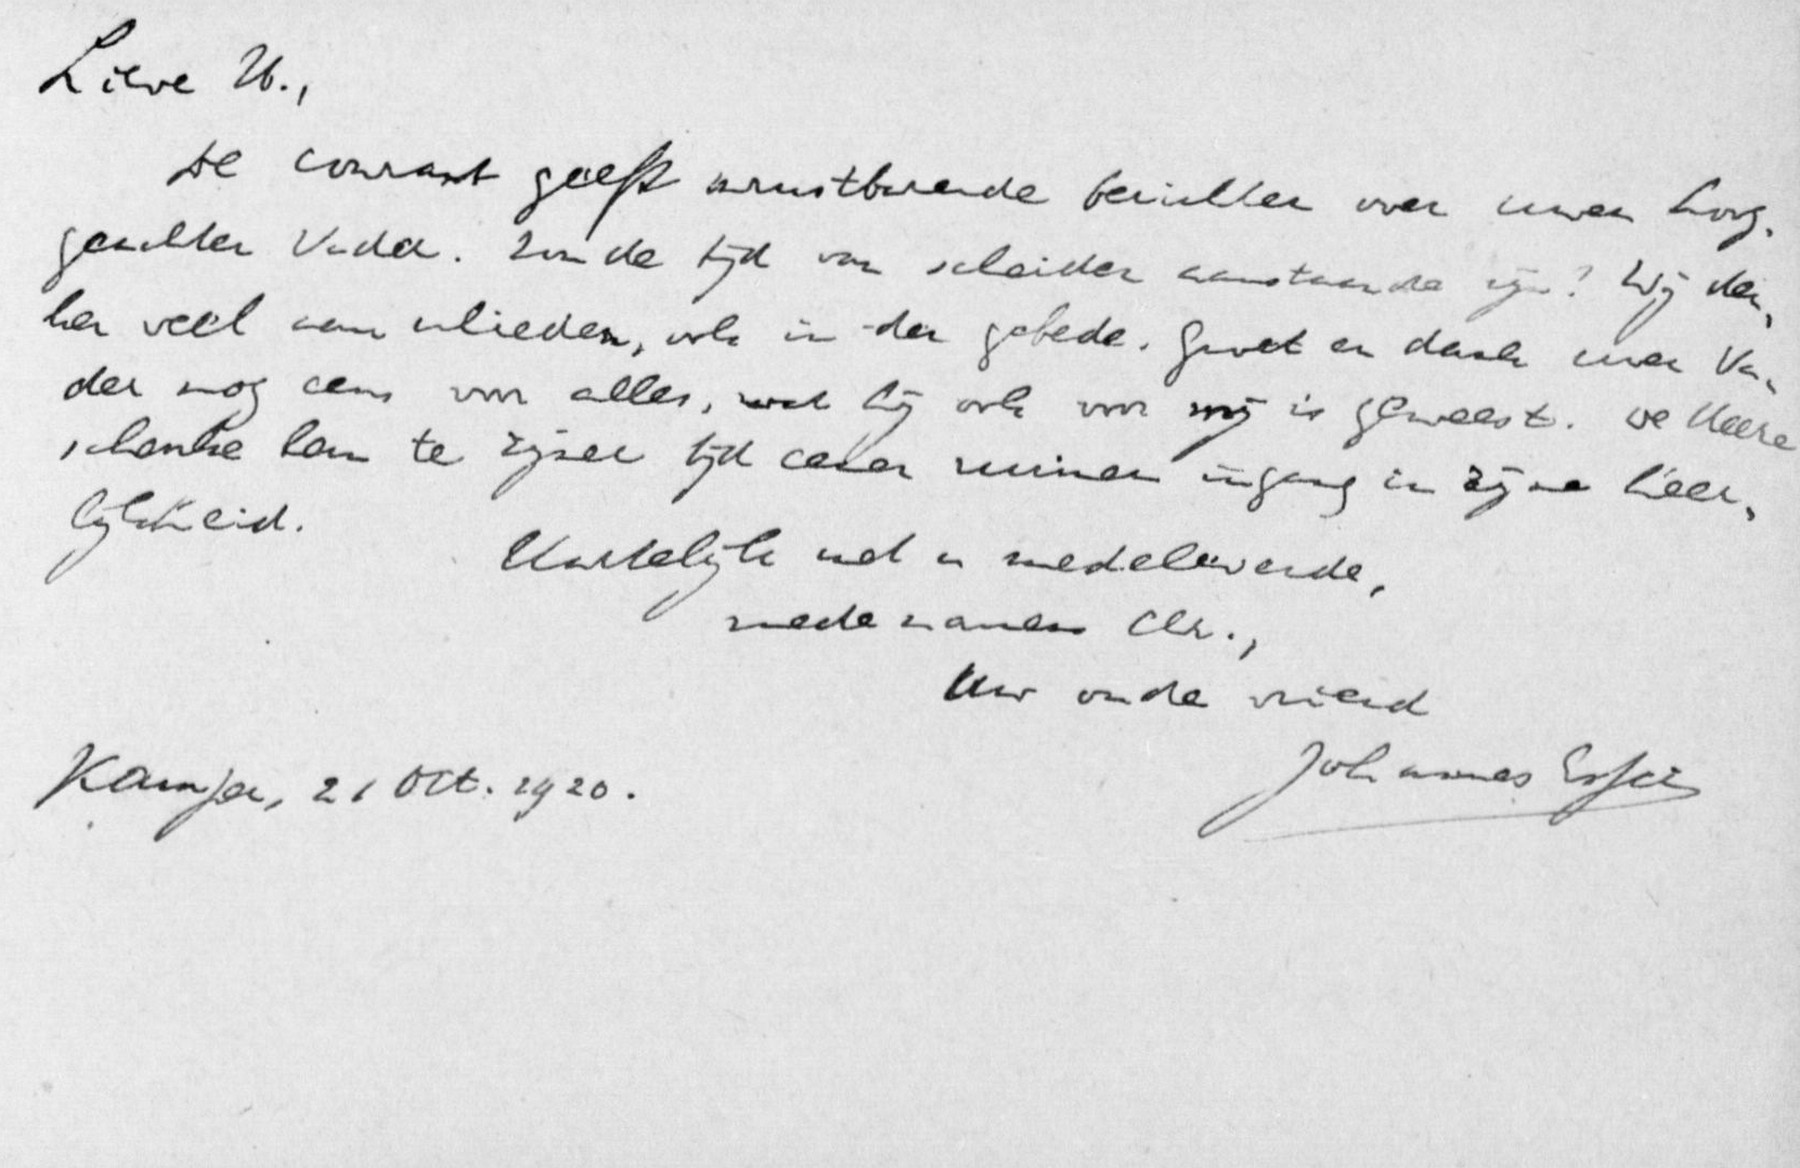 Lieve H.,
De courant geeft onrustbarende berichten over uwen hoog-
geachten Vader. Zou de tijd van scheiden aanstaande zijn? Wij den-
ken veel aan ulieden, ook in den gebede. Groet en dank uwen Va-
der nog eens voor alles, wat hij ook voor mij is geweest. De Heere
schenke hem te Zijner tijd eenen ruimen ingang in Zijne heer-
lijkheid.
Hartelijk met u medelevende,
mede namens
Uw oude vriend
Johannes
Kampen, 21 Oct. 1920.